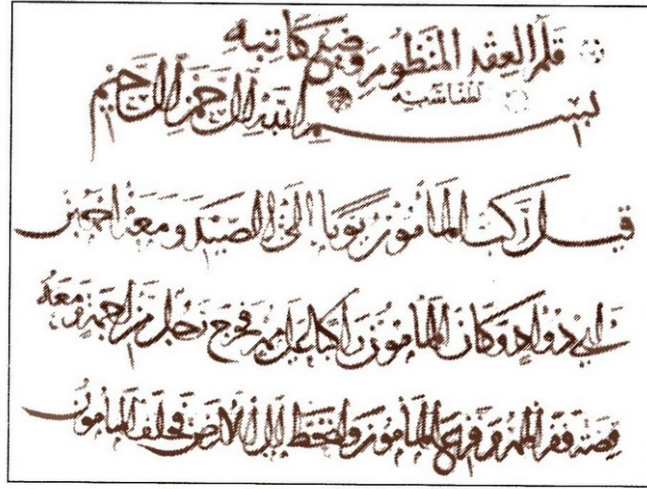 قلم العقد المنظوم وضع كاتبه
لمناسبته
بسم الله الرحمن الرحيم
قيل ركب المأمون يوما إلى الصيد ومعه احمد بن
ابي دواد وكان المأمون راكبا على مهر فخرج رجل من اجمة ومعه
قصة فنفر المهر ورمى بالمأمون وانحط إلى الارض فحلف المأمون